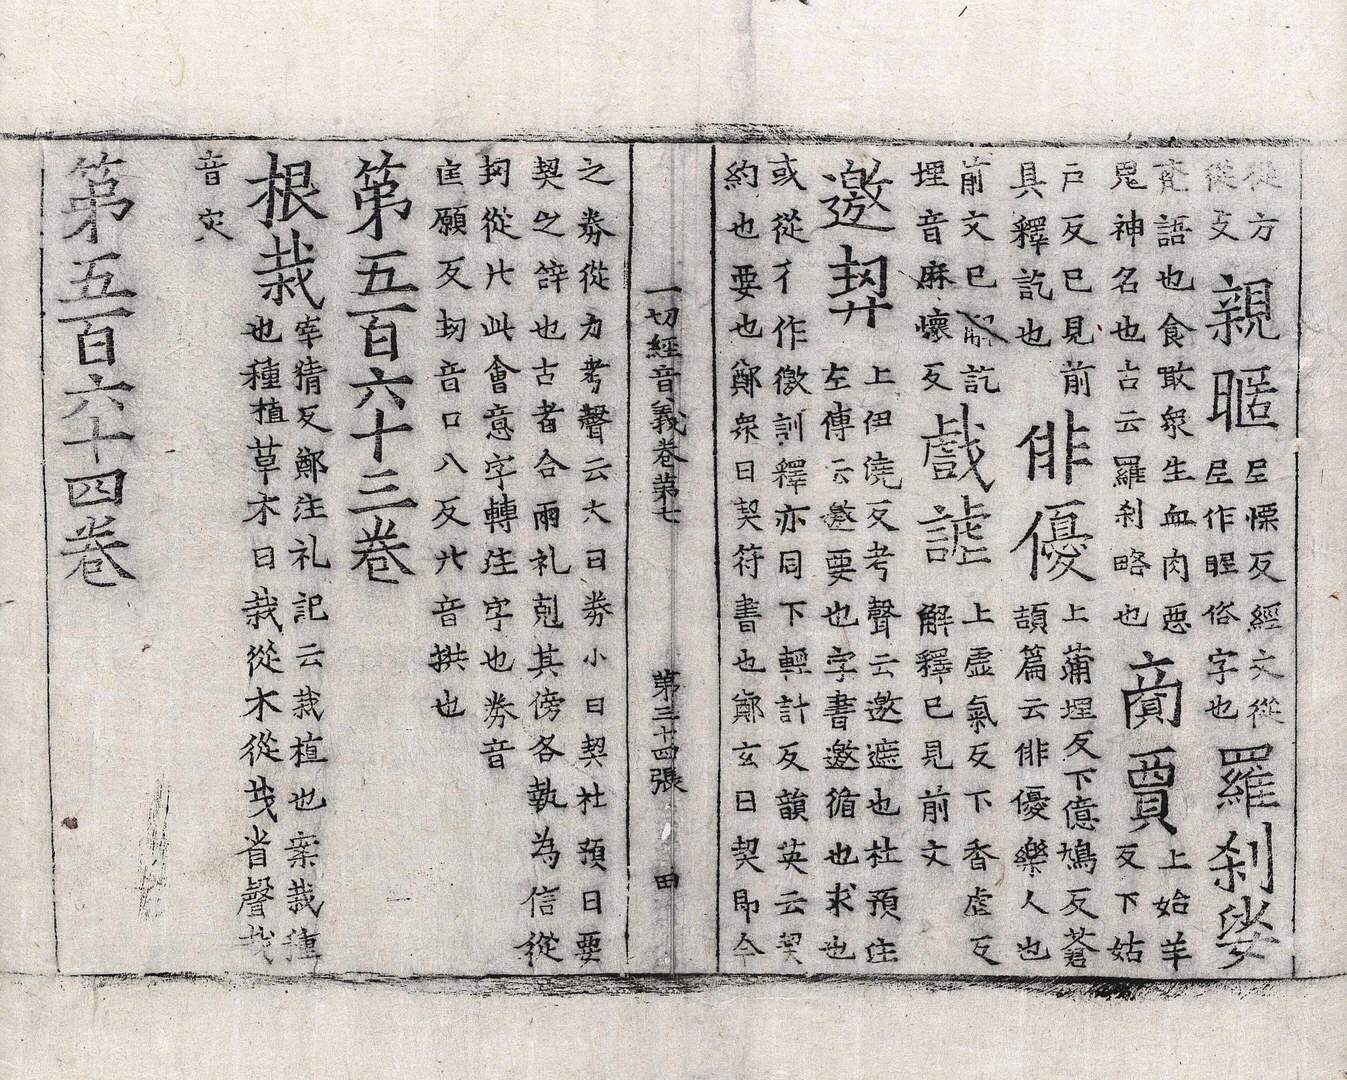 從方
從攵
親暱
尼慄反經文從
尼作昵俗字也
羅刹娑
梵語也食啖衆生血肉惡
鬼神名也古云羅刹略也
商賈
上始羊
反下姑
戶反已見前
具釋訖也
俳優
上蒲埋反下億鳩反蒼
頡篇云俳優樂人也
前文已解訖
埋音麻懷反
戲謔
上虛氣反下香虐反
解釋已見前文
邀契
上伊僥反考聲云邀遮也杜預注
左傳云邀要也字書邀循也求也
或從彳作徼訓釋亦同下輕計反韻英云契
約也要也鄭衆曰契符書也鄭玄曰契即今
一切經音義卷第七 第三十四張 田
之券從力考聲云大曰券小曰契杜預曰要
契之辝也古者合兩礼剋其傍各執為信從
㓞從廾此會意字轉注字也券音
匡願反㓞音口八反廾音拱也
第五百六十三卷
根栽
宰猜反鄭注礼記云栽植也案栽種
也種植草木曰栽從木從𢦏省聲𢦏
音灾
第五百六十四卷